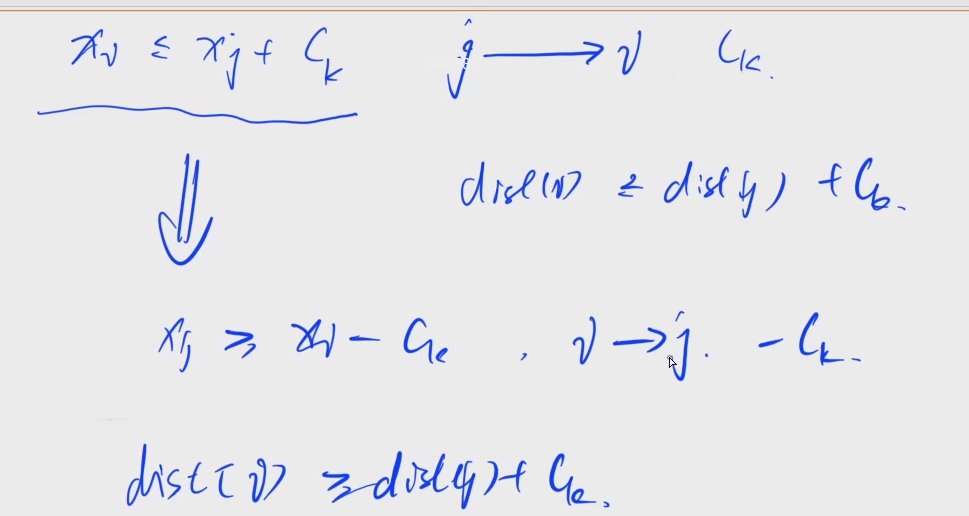 xᵢ ≤ xⱼ + Cₖ    j → i    Cₖ.
dist(i) ≤ dist(j) + Cₖ.
⇓
xⱼ ≥ xᵢ - Cₖ , i → j. - Cₖ.
dist[i) ≥ dist(j) + Cₖ.